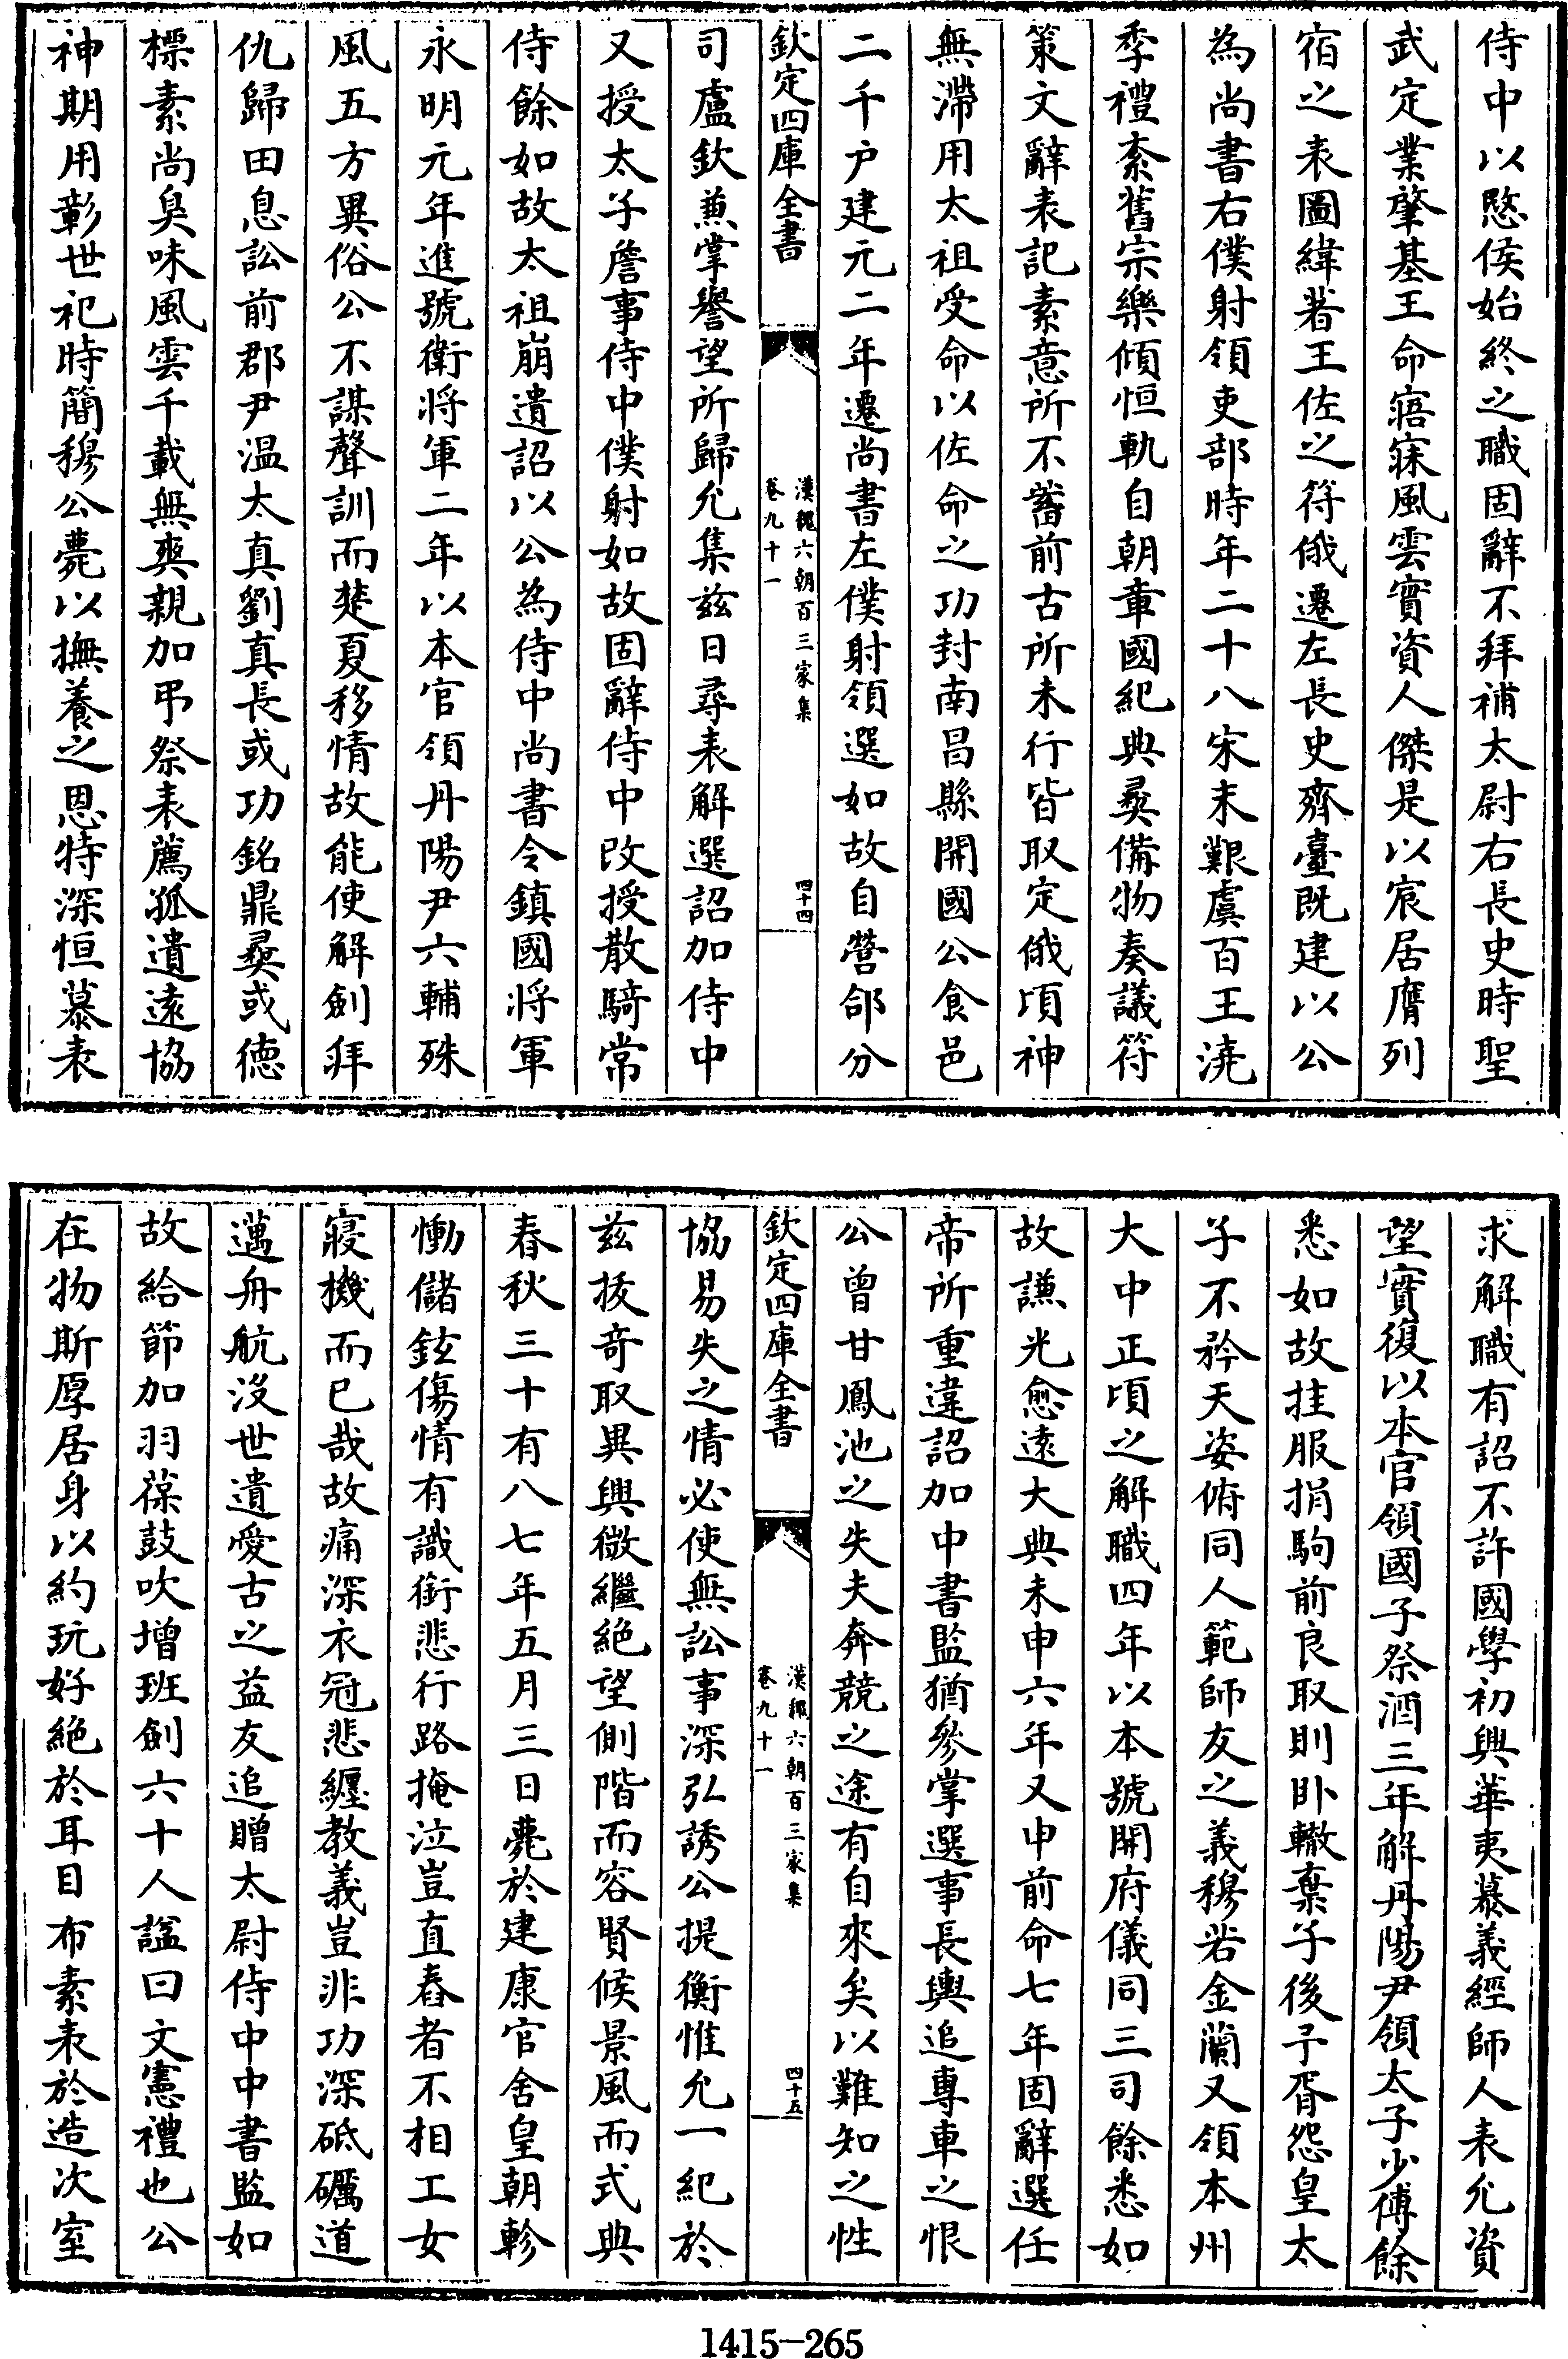 侍中以愍侯始終之職固辭不拜補太尉右長史時聖
武定業肇基王命寤寐風雲實資人傑是以宸居膺列
宿之表圖緯著王佐之符俄遷左長史齊臺既建以公
為尚書右僕射領吏部時年二十八宋末艱虞百王澆
季禮紊舊宗樂傾恒軌自朝章國紀典彛備物奏議符
策文辭表記素意所不蓄前古所未行皆取定俄頃神
無滯用太祖受命以佐命之功封南昌縣開國公食邑
二千户建元二年遷尚書左僕射領選如故自營郃分
欽定四庫全書
漢魏六朝百三家集
卷九十一
四十四
司盧欽兼掌譽望所歸允集兹日尋表解選詔加侍中
又授太子詹事侍中僕射如故固辭侍中改授散騎常
侍餘如故太祖崩遺詔以公為侍中尚書令鎮國將軍
永明元年進號衛將軍二年以本官領丹陽尹六輔殊
風五方異俗公不謀聲訓而楚夏移情故能使解劍拜
仇歸田息訟前郡尹温太真劉真長或功銘鼎彛或徳
標素尚臭味風雲千載無爽親加弔祭表薦孤遺逺協
神期用彰世祀時簡穆公薨以撫養之恩特深恒慕表
求解職有詔不許國學初興華夷慕義經師人表允資
望實復以本官領國子祭酒三年解丹陽尹領太子少傅餘
悉如故挂服捐駒前良取則卧轍棄子後予胥怨皇太
子不矜天姿俯同人範師友之義穆若金蘭又領本州
大中正頃之解職四年以本號開府儀同三司餘悉如
故謙光愈逺大典未申六年又申前命七年固辭選任
帝所重違詔加中書監猶參掌選事長輿追專車之恨
公曾甘鳳池之失夫奔競之途有自來矣以難知之性
欽定四庫全書
漢魏六朝百三家集
卷九十一
四十五
協易失之情必使無訟事深弘誘公提衡惟允一紀於
兹拔竒取異興微繼絶望側階而容賢候景風而式典
春秋三十有八七年五月三日薨於建康官舍皇朝軫
慟儲鉉傷情有識銜悲行路掩泣豈直舂者不相工女
寢機而已哉故痛深衣冠悲纏教義豈非功深砥礪道
邁舟航没世遺愛古之益友追贈太尉侍中中書監如
故給節加羽葆鼓吹增班劍六十人諡曰文憲禮也公
在物斯厚居身以約玩好絶於耳目布素表於造次室
1415-265